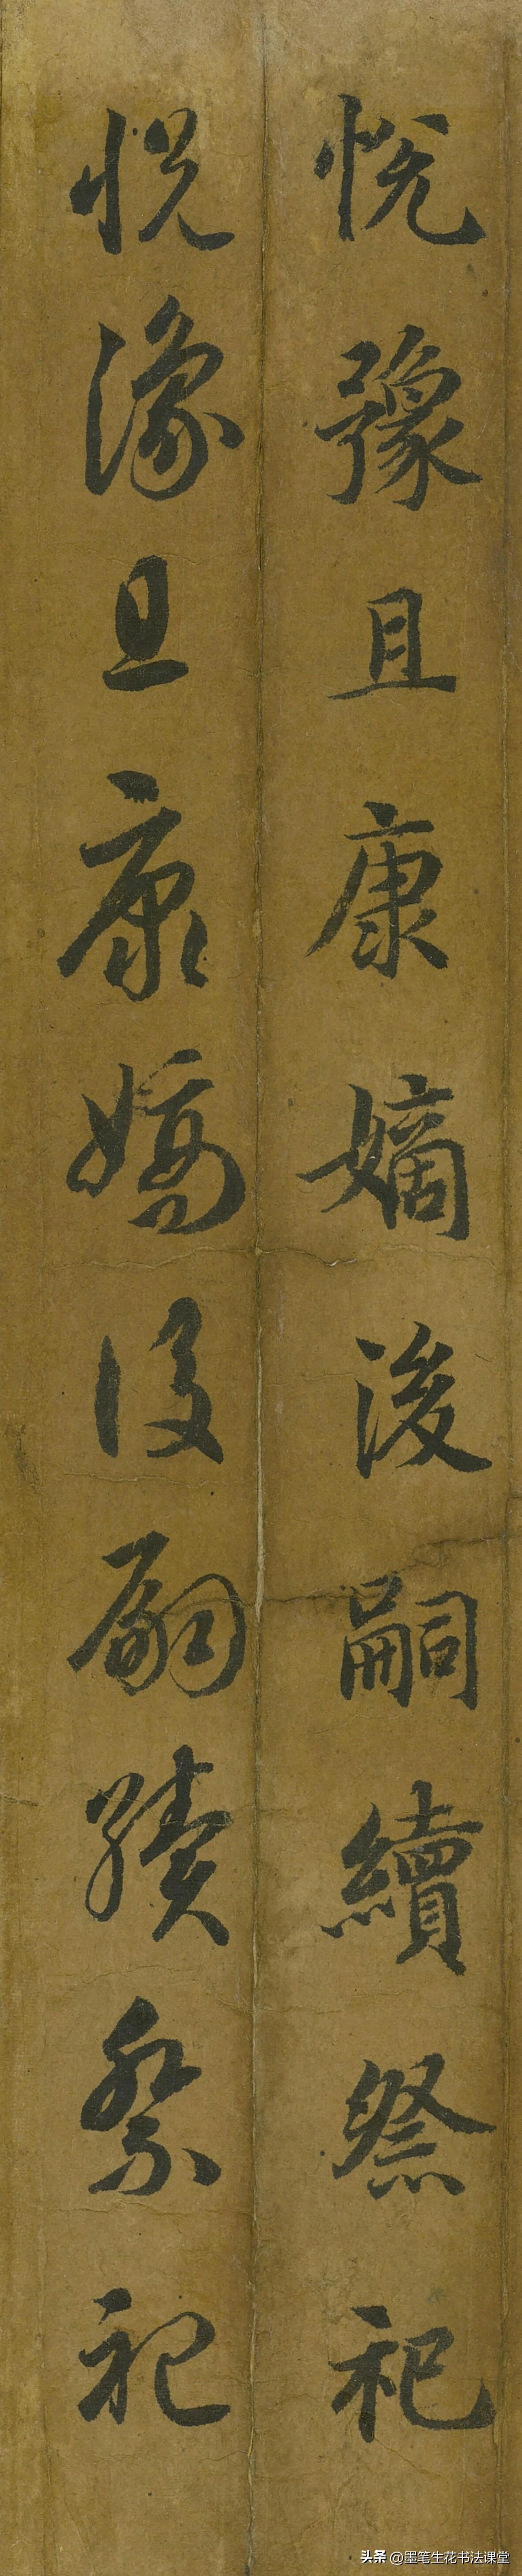 悦豫且康嫡後嗣續祭祀
悦豫且康嫡後嗣續祭祀
头条 @墨笔生花书法课堂